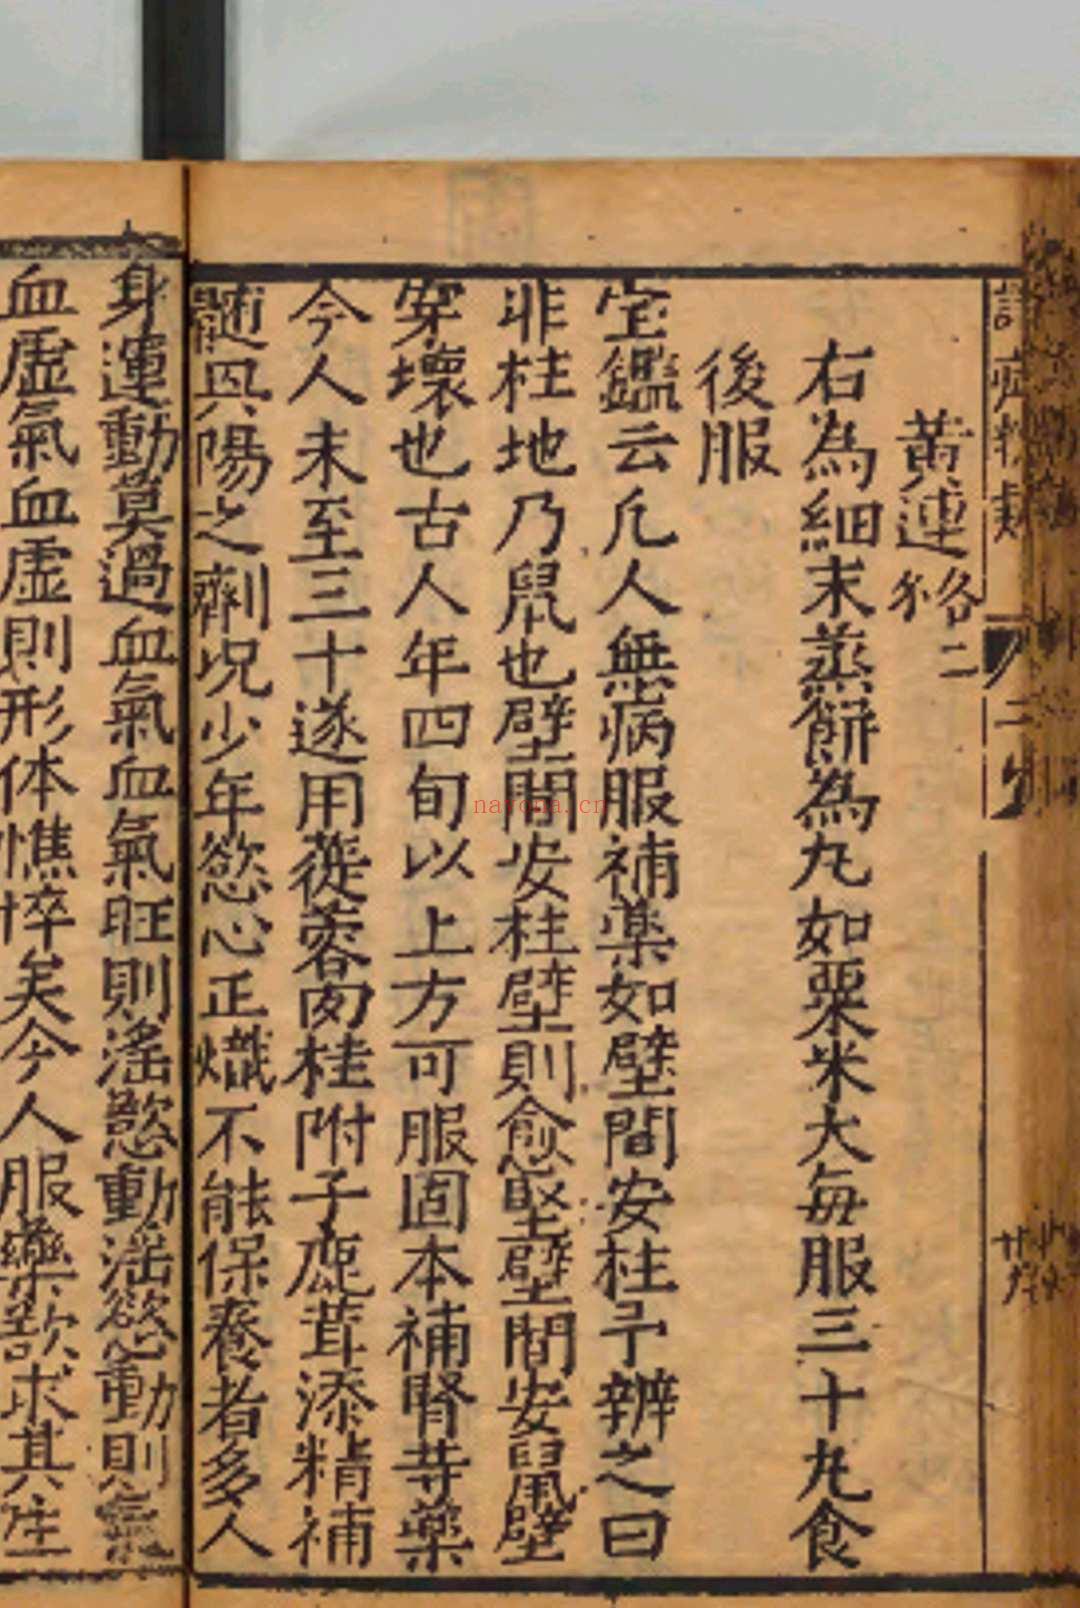 黄連各二
右為細末蒸餅為丸如粟米大每服三十丸食
後服
宝鑑云凢人無病服補薬如壁間安柱予辨之曰
非柱地乃鼠也壁間安柱壁則愈堅壁間安鼠壁
穿壊也古人年四旬以上方可服固本補腎䓁薬
今人未至三十遂用蓯蓉肉桂附子鹿茸添精補
髓只陽之劑况少年慾心正熾不能保養者多人
身運動莫過血氣血氣旺則滛慾動滛慾動則
血虚氣血虚則形体憔悴矣今人服藥欲求其生
nayona.cn